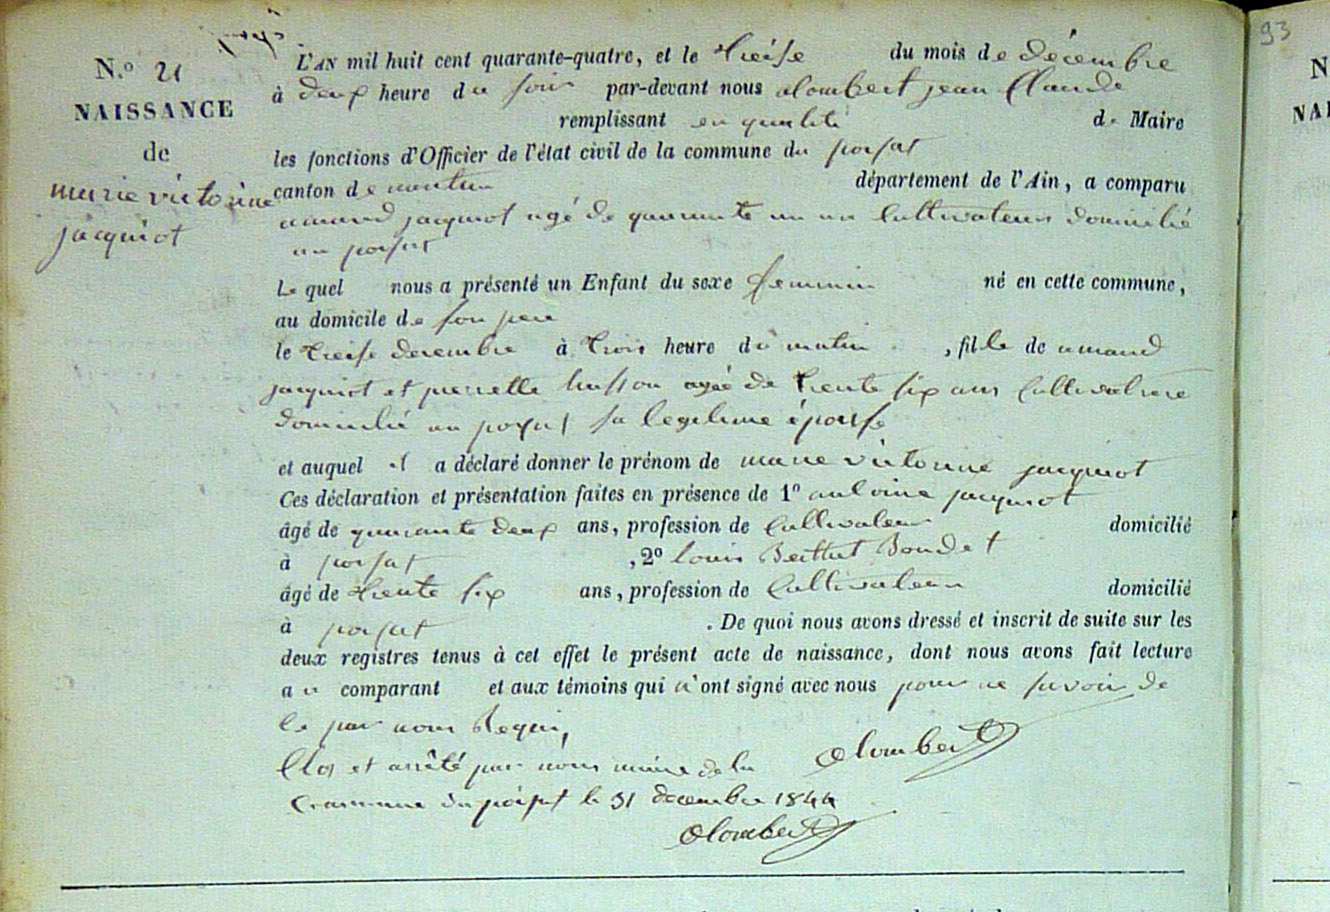 93
N.º 21
NAISSANCE
de
marie victorine
jacquiot
L'AN mil huit cent quarante-quatre, et le treise du mois de décembre
à deux heure du soir par-devant nous alombert jean Claude
remplissant en qualité de Maire
les fonctions d'Officier de l'état civil de la commune du poisat
canton de nantua département de l'Ain, a comparu
amand jacquiot agé de quarante un an Cultivateur domicilié
au poisat
Le quel nous a présenté un Enfant du sexe feminin né en cette commune,
au domicile de son pere
le treise decembre à trois heure du matin, fille de amand
jacquiot et pierrette husson agée de trente six ans Cultivatrice
domicilié au poisat sa legitime épouse
et auquel il a déclaré donner le prénom de marie victorine jacquiot
Ces déclaration et présentation faites en présence de 1º antoine jacquiot
âgé de quarante deux ans, profession de Cultivateur domicilié
à poisat, 2º louis Berthet Bondet
âgé de trente six ans, profession de Cultivateur domicilié
à poisat. De quoi nous avons dressé et inscrit de suite sur les
deux registres tenus à cet effet le présent acte de naissance, dont nous avons fait lecture
au comparant et aux témoins qui n'ont signé avec nous pour ne savoir de
le par nous Requi,
Clos et arrêté par nous maire de la alombert
Commune du poisat le 31 decembre 1844
alombert
N
NAI